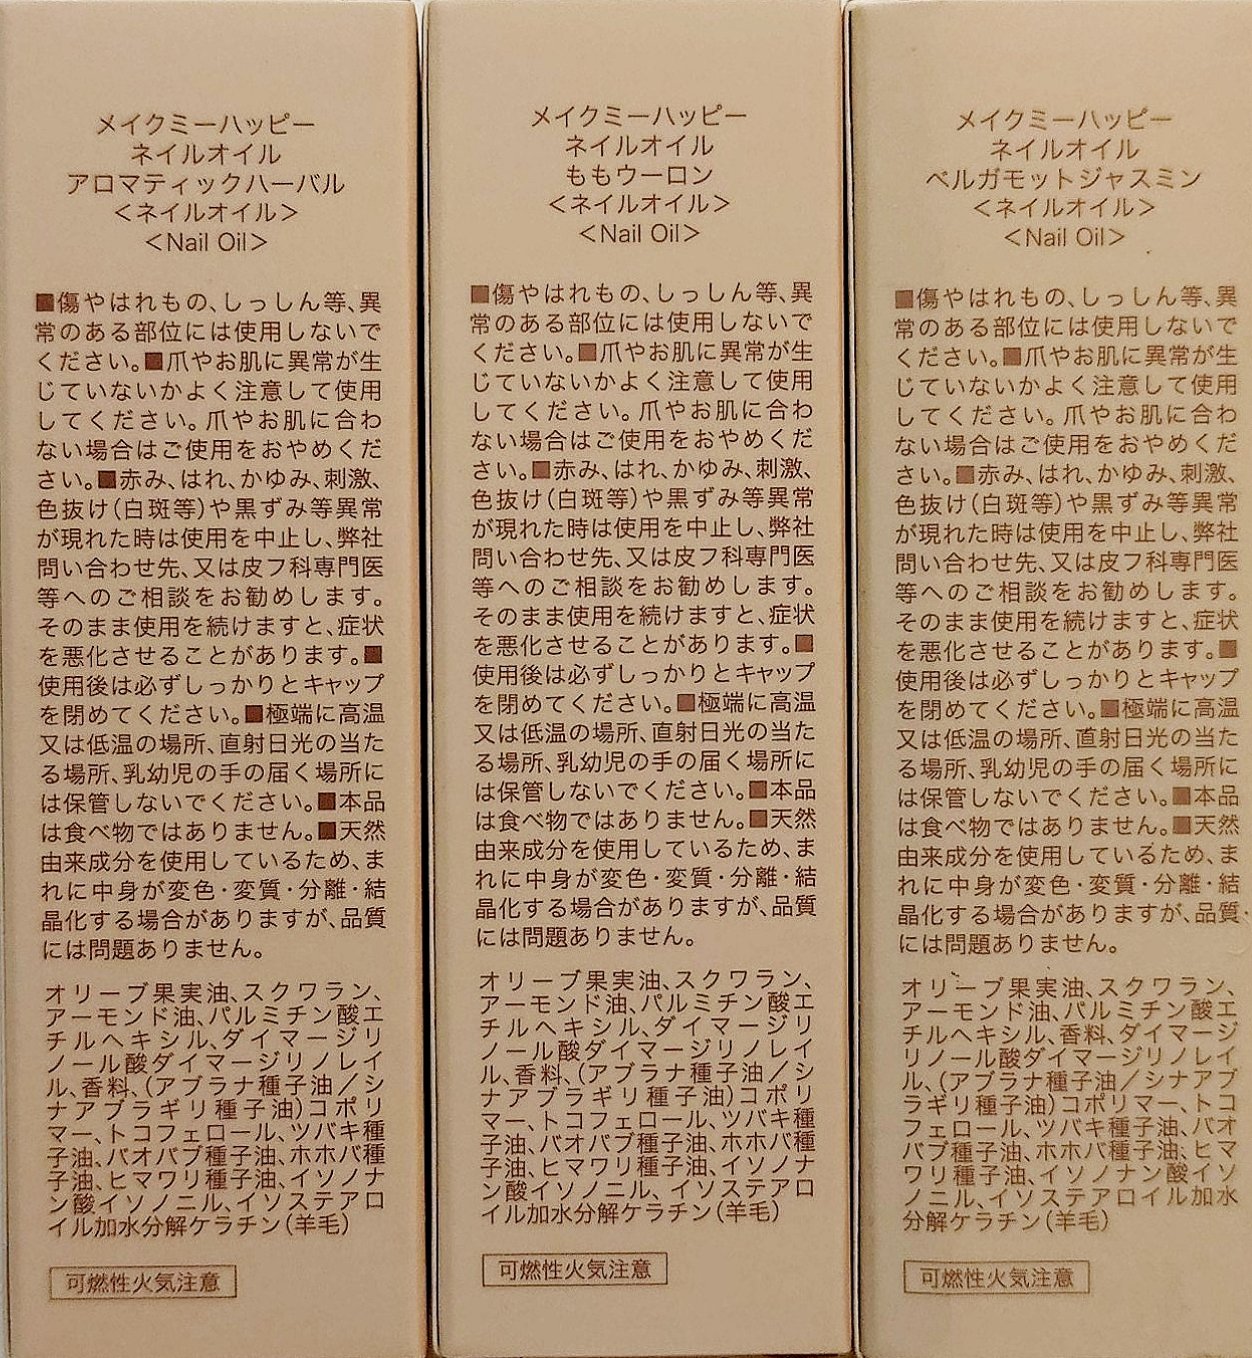 メイクミーハッピー
ネイルオイル
アロマティックハーバル
＜ネイルオイル＞
＜Nail Oil＞
■傷やはれもの、しっしん等、異
常のある部位には使用しないで
ください。■爪やお肌に異常が生
じていないかよく注意して使用
してください。爪やお肌に合わ
ない場合はご使用をおやめくだ
さい。■赤み、はれ、かゆみ、刺激、
色抜け（白斑等）や黒ずみ等異常
が現れた時は使用を中止し、弊社
問い合わせ先、又は皮フ科専門医
等へのご相談をお勧めします。
そのまま使用を続けますと、症状
を悪化させることがあります。■
使用後は必ずしっかりとキャップ
を閉めてください。■極端に高温
又は低温の場所、直射日光の当た
る場所、乳幼児の手の届く場所に
は保管しないでください。■本品
は食べ物ではありません。■天然
由来成分を使用しているため、ま
れに中身が変色・変質・分離・結
晶化する場合がありますが、品質
には問題ありません。
オリーブ果実油、スクワラン、
アーモンド油、パルミチン酸エ
チルヘキシル、ダイマージリ
ノール酸ダイマージリノレイ
ル、香料、（アブラナ種子油／シ
ナアブラギリ種子油）コポリ
マー、トコフェロール、ツバキ種
子油、バオバブ種子油、ホホバ種
子油、ヒマワリ種子油、イソノナ
ン酸イソノニル、イソステアロ
イル加水分解ケラチン（羊毛）
可燃性火気注意
メイクミーハッピー
ネイルオイル
ももウーロン
＜ネイルオイル＞
＜Nail Oil＞
■傷やはれもの、しっしん等、異
常のある部位には使用しないで
ください。■爪やお肌に異常が生
じていないかよく注意して使用
してください。爪やお肌に合わ
ない場合はご使用をおやめくだ
さい。■赤み、はれ、かゆみ、刺激、
色抜け（白斑等）や黒ずみ等異常
が現れた時は使用を中止し、弊社
問い合わせ先、又は皮フ科専門医
等へのご相談をお勧めします。
そのまま使用を続けますと、症状
を悪化させることがあります。■
使用後は必ずしっかりとキャップ
を閉めてください。■極端に高温
又は低温の場所、直射日光の当た
る場所、乳幼児の手の届く場所に
は保管しないでください。■本品
は食べ物ではありません。■天然
由来成分を使用しているため、ま
れに中身が変色・変質・分離・結
晶化する場合がありますが、品質
には問題ありません。
オリーブ果実油、スクワラン、
アーモンド油、パルミチン酸エ
チルヘキシル、ダイマージリ
ノール酸ダイマージリノレイ
ル、香料、（アブラナ種子油／シ
ナアブラギリ種子油）コポリ
マー、トコフェロール、ツバキ種
子油、バオバブ種子油、ホホバ種
子油、ヒマワリ種子油、イソノナ
ン酸イソノニル、イソステアロ
イル加水分解ケラチン（羊毛）
可燃性火気注意
メイクミーハッピー
ネイルオイル
ベルガモットジャスミン
＜ネイルオイル＞
＜Nail Oil＞
■傷やはれもの、しっしん等、異
常のある部位には使用しないで
ください。■爪やお肌に異常が生
じていないかよく注意して使用
してください。爪やお肌に合わ
ない場合はご使用をおやめくだ
さい。■赤み、はれ、かゆみ、刺激、
色抜け（白斑等）や黒ずみ等異常
が現れた時は使用を中止し、弊社
問い合わせ先、又は皮フ科専門医
等へのご相談をお勧めします。
そのまま使用を続けますと、症状
を悪化させることがあります。■
使用後は必ずしっかりとキャップ
を閉めてください。■極端に高温
又は低温の場所、直射日光の当た
る場所、乳幼児の手の届く場所に
は保管しないでください。■本品
は食べ物ではありません。■天然
由来成分を使用しているため、ま
れに中身が変色・変質・分離・結
晶化する場合がありますが、品質
には問題ありません。
オリーブ果実油、スクワラン、
アーモンド油、パルミチン酸エ
チルヘキシル、香料、ダイマージ
リノール酸ダイマージリノレイ
ル、（アブラナ種子油／シナアブ
ラギリ種子油）コポリマー、トコ
フェロール、ツバキ種子油、バオ
バブ種子油、ホホバ種子油、ヒマ
ワリ種子油、イソノナン酸イソ
ノニル、イソステアロイル加水
分解ケラチン（羊毛）
可燃性火気注意